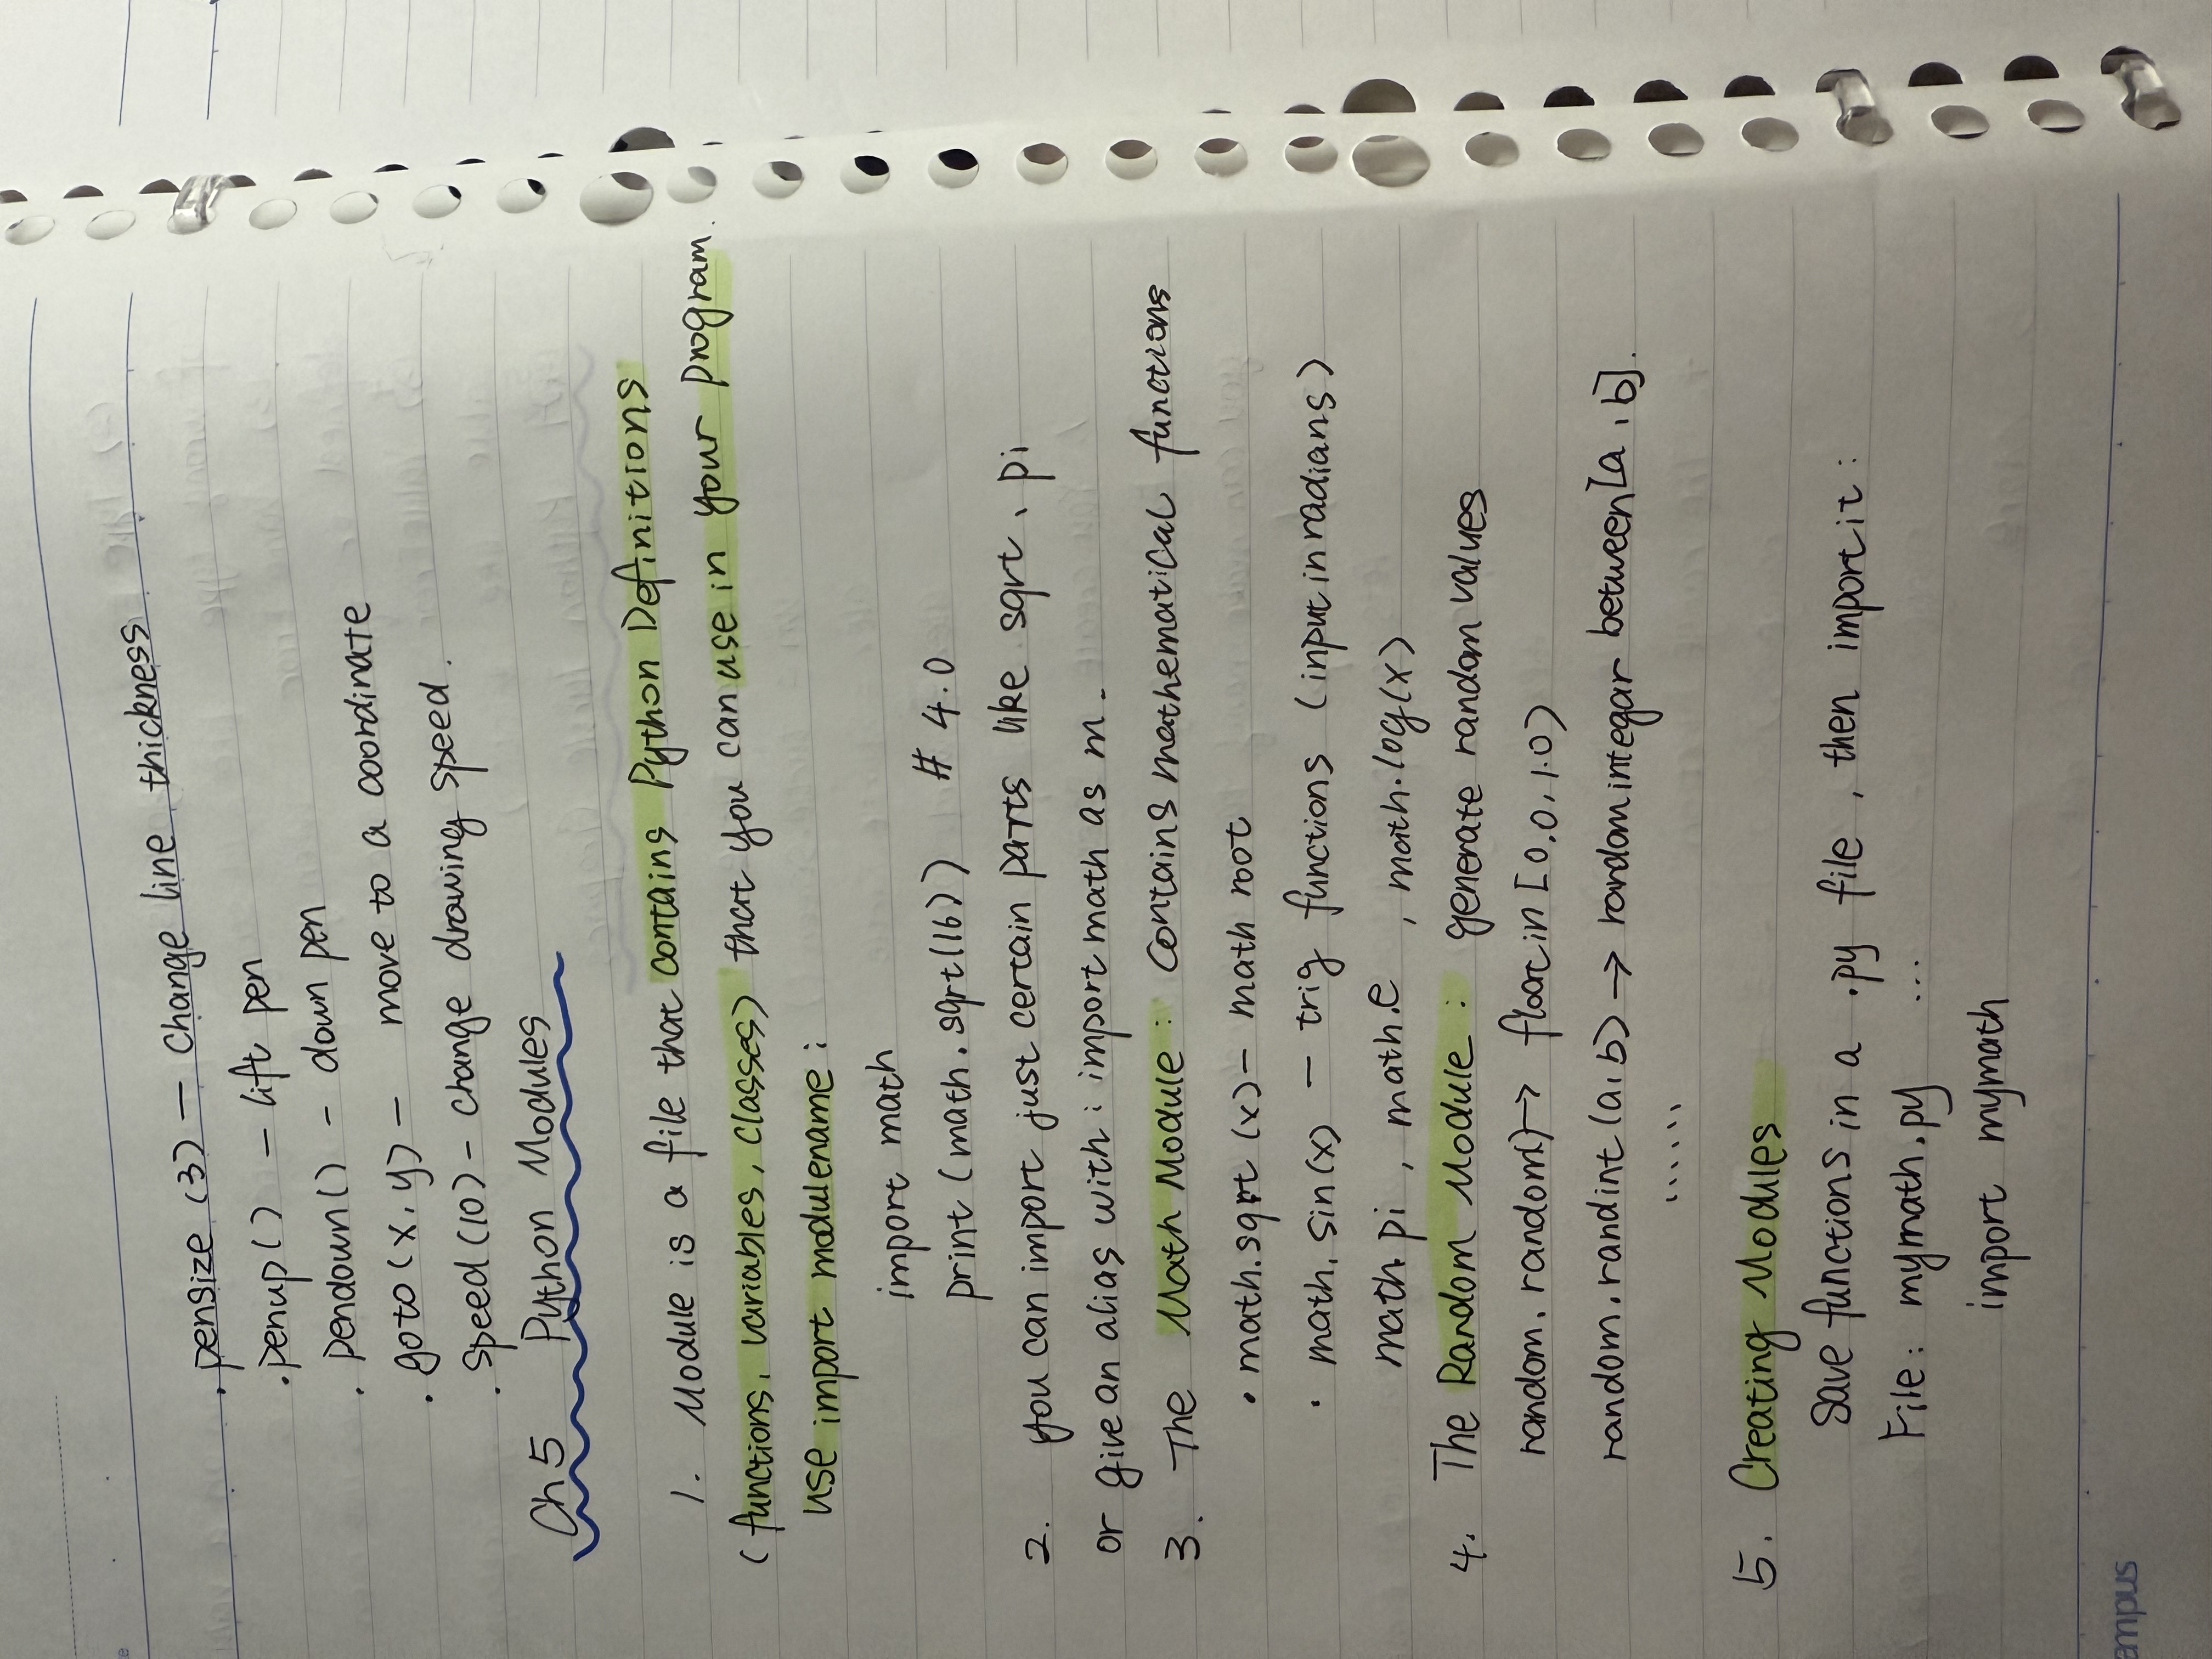 . pensize (3) — change line thickness
. penup () — lift pen
. pendown () - down pen
. goto (x, y) — move to a coordinate
. speed (10) - change drawing speed.
Ch 5 Python Modules
1. Module is a file that contains Python Definitions
(functions, variables, classes) that you can use in your program.
use import modulename :
import math
print (math.sqrt(16)) # 4.0
2. you can import just certain parts like sqrt, pi
or give an alias with : import math as m.
3. The Math Module : contains mathematical functions
• math.sqrt (x) - math root
• math.sin(x) — trig functions (input in radians)
math.pi , math.e , math.log(x)
4. The Random Module : generate random values
random.random() → float in [0.0, 1.0)
random.randint (a, b) → random integar between [a, b].
......
5. Creating Modules
Save functions in a .py file , then import it :
File: mymath.py ...
import mymath
ampus